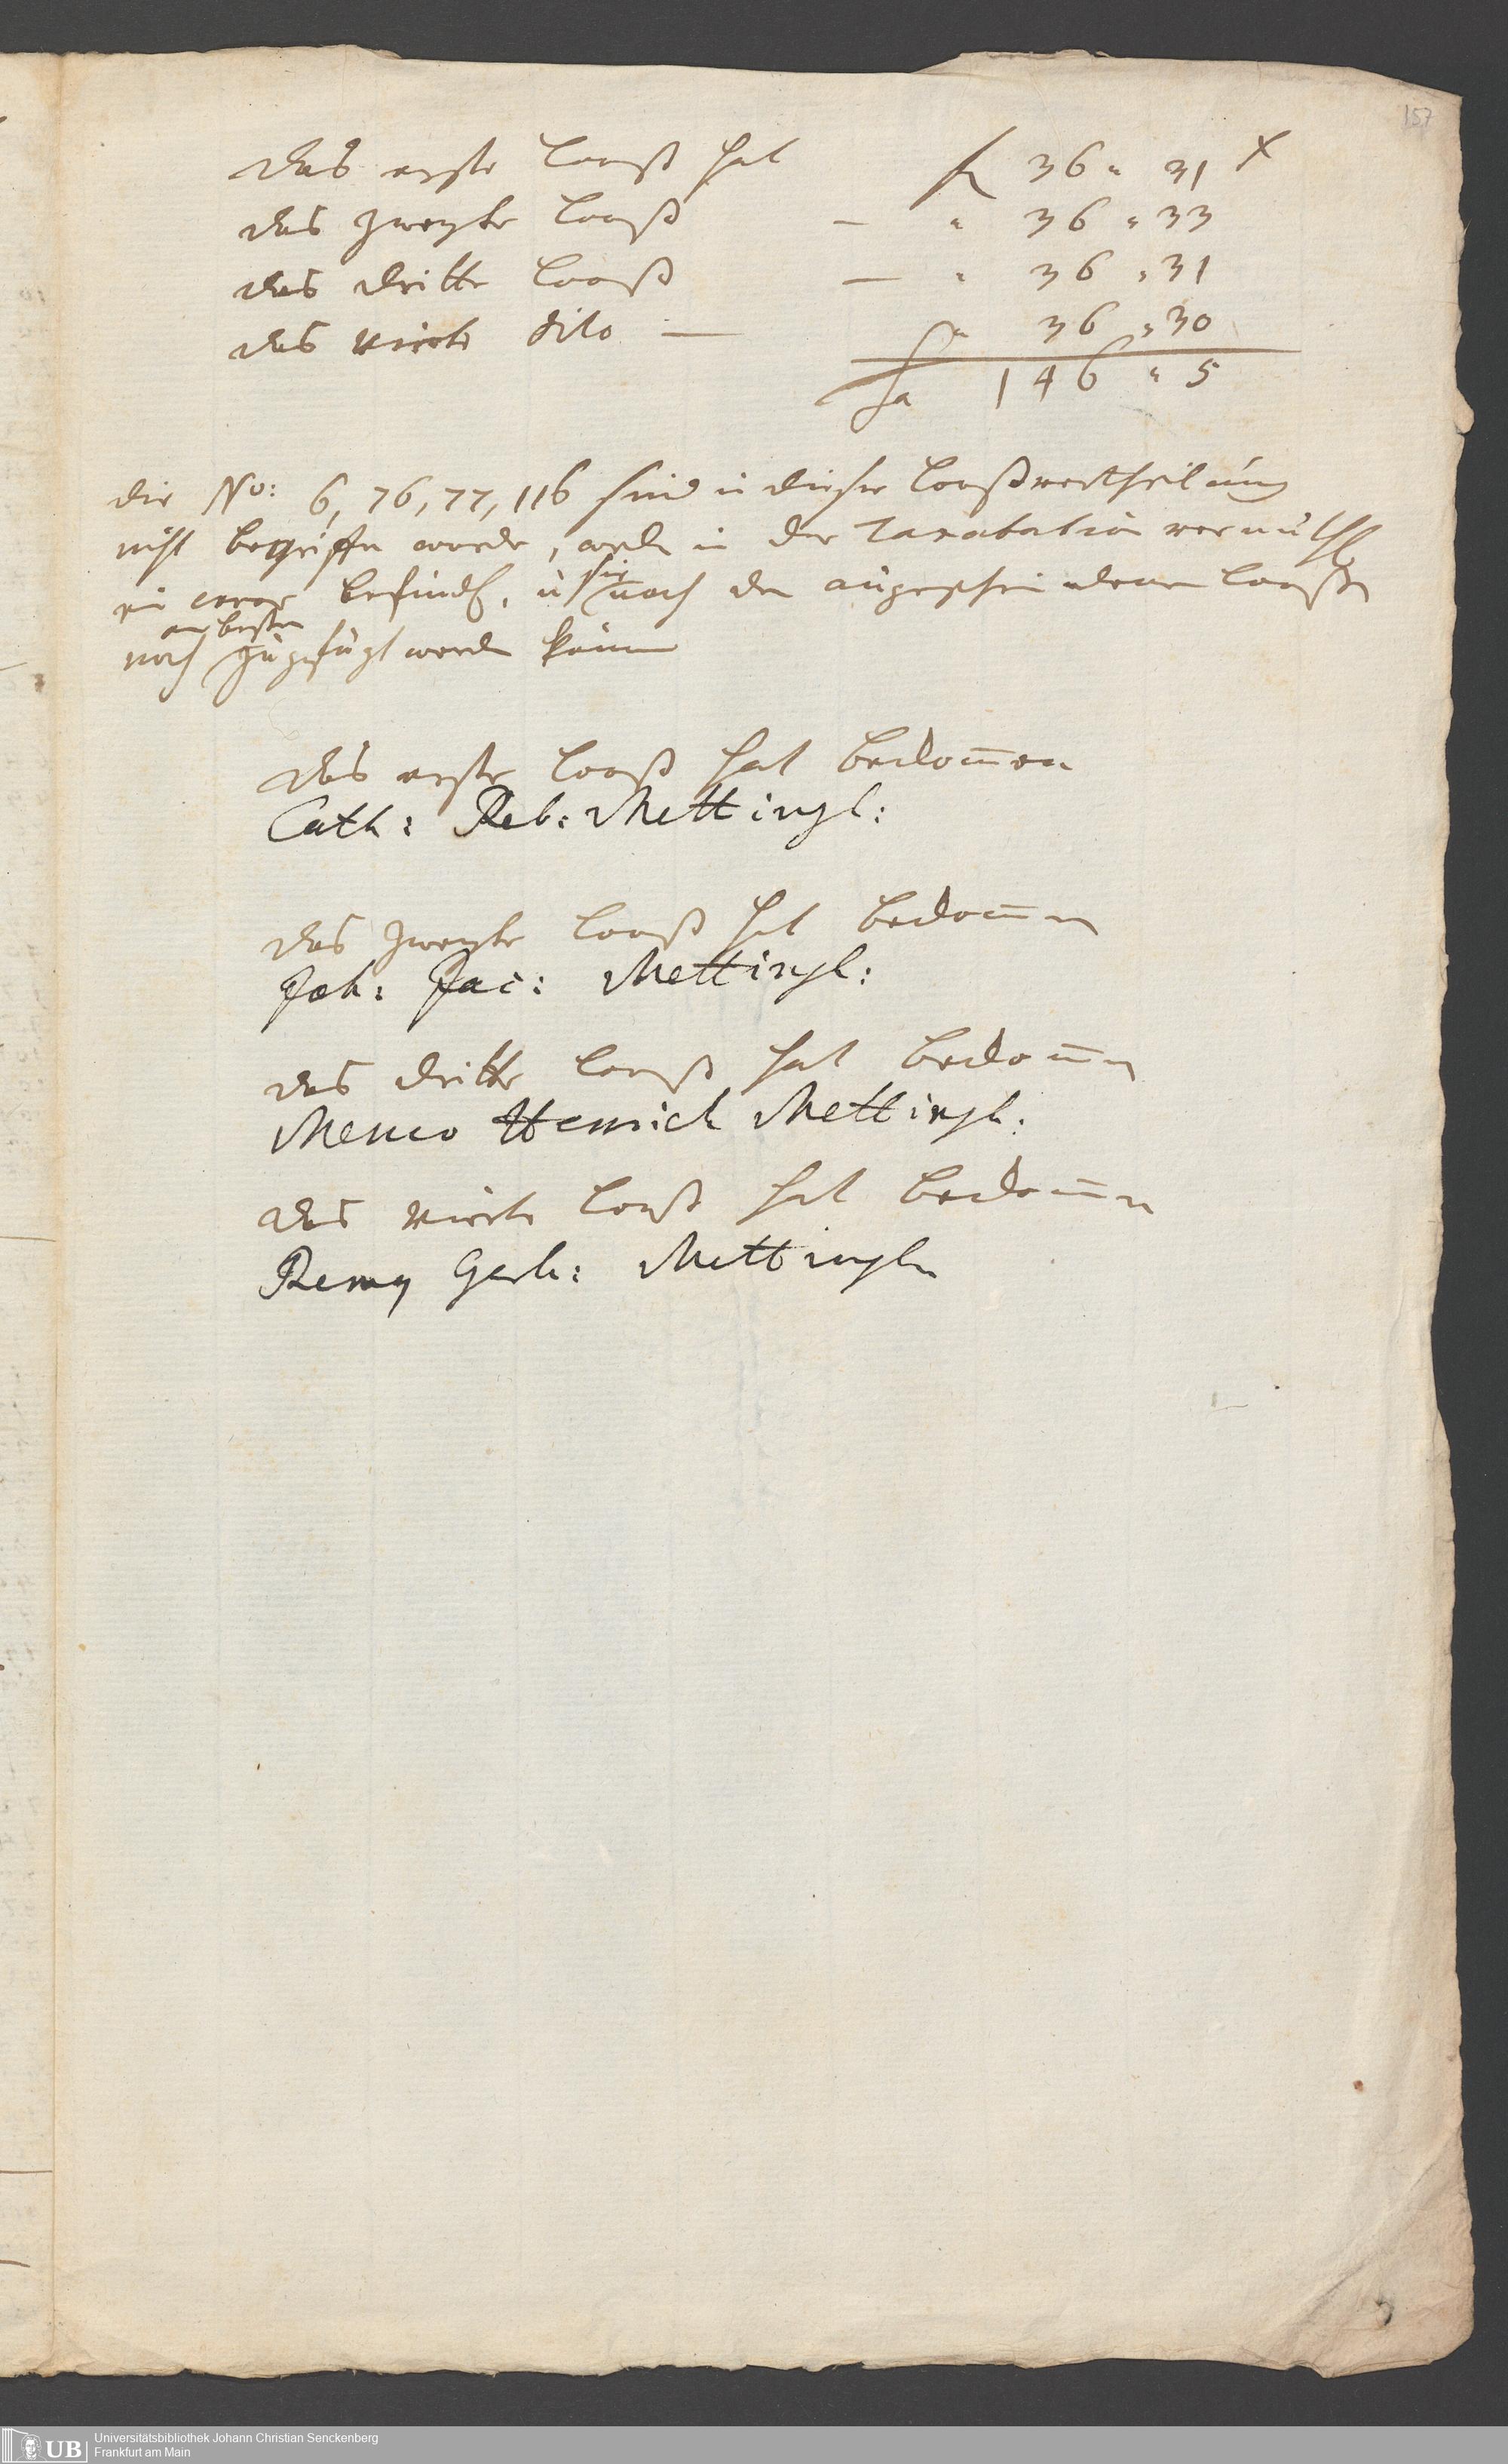 157
das erste looß hat f 36 " 31 x
das zweyte looß — " 36 " 33
das dritte looß — " 36 " 31
das vierte dito — " 36 " 30
Sa 146 " 5
die No: 6, 76, 77, 116 sind in dieser looßvertheilung
nicht begriffen worden, weil in der Taxatation vermuthl
ein error befindl. u sie nach den
am besten
noch zugefügt werden können
das erste looß hat bekom̅en
Cath: Reb: Mettingh:
das zweyte looß hat bekom̅en
Joh: Jac: Mettingh:
das dritte looß hat bekom̅en
Menco Henrich Mettingh:
das vierte looß hat bekom̅en
Remy Gerh: Mettingh
UB Universitätsbibliothek Johann Christian Senckenberg
Frankfurt am Main